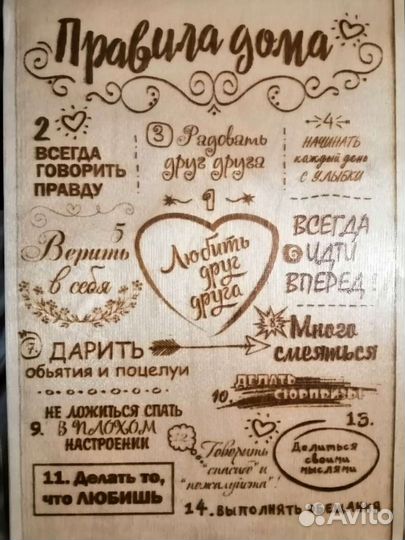 Правила дома
1
Любить
друг
друга
2
ВСЕГДА
ГОВОРИТЬ
ПРАВДУ
3 Радовать
друг друга
4
НАЧИНАТЬ
каждый день
С УЛЫБКИ
5
Верить
в себя
ВСЕГДА
6 ИДТИ
ВПЕРЕД!
7. ДАРИТЬ
объятия и поцелуи
8 Много
смеяться
9. НЕ ЛОЖИТЬСЯ СПАТЬ
В ПЛОХОМ
НАСТРОЕНИИ
10. ДЕЛАТЬ
СЮРПРИЗЫ
11. Делать то,
что ЛЮБИШЬ
12
Говорить
"спасибо" и
"пожалуйста"!
13.
Делиться
своими
мыслями
14. ВЫПОЛНЯТЬ ОБЕЩАНИЯ
Avito